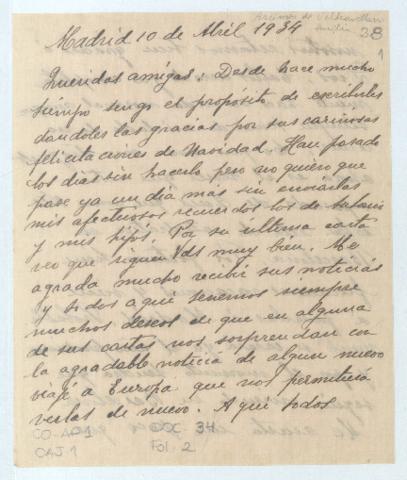 38
1
Madrid 10 de Abril 1934
Queridas amigas: Desde hace mucho
tiempo tengo el propósito de escribirles
dandoles las gracias por sus cariñosas
felicitaciones de Navidad. Han pasado
los dias sin hacerlo pero no quiero que
pase ya un dia más sin enviarlas
mis afectuosos recuerdos los de
y mis hijos. Por su ultima carta
veo que siguen Vds muy bien. Me
agrada mucho recibir sus noticias
y todos aqui tenemos siempre
muchos deseos de que en alguna
de sus cartas nos sorprendan con
la agradable noticia de algun nuevo
viaje a Europa que nos permitiera
verlas de nuevo. Aqui todos
CO-AP1 DOC- 34
CAJ. 1 Fol. 2